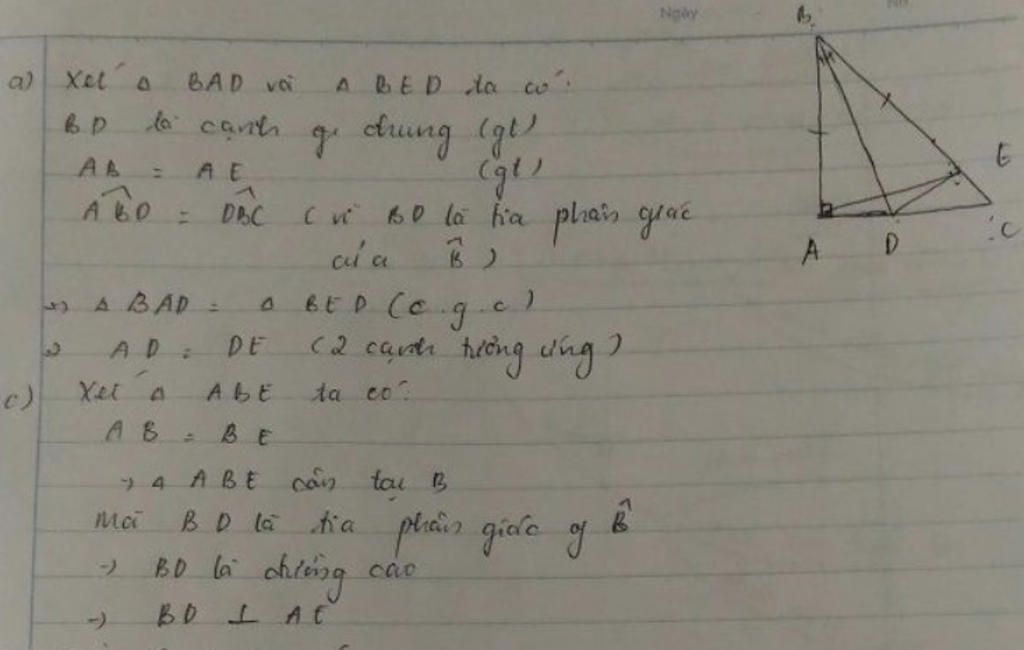 Ngày
B
a) Xét Δ BAD và Δ BED ta có:
BD là cạnh chung (gt)
AB = AE (gt)
ABD = DBC (vì BD là tia phân giác
của B)
=> Δ BAD = Δ BED (c.g.c)
=> AD = DE (2 cạnh tương ứng)
E
C
A D
c) Xét Δ ABE ta có:
AB = BE
-> Δ ABE cân tại B
Mà BD là tia phân giác B
-> BD là đường cao
-> BD ⊥ AE